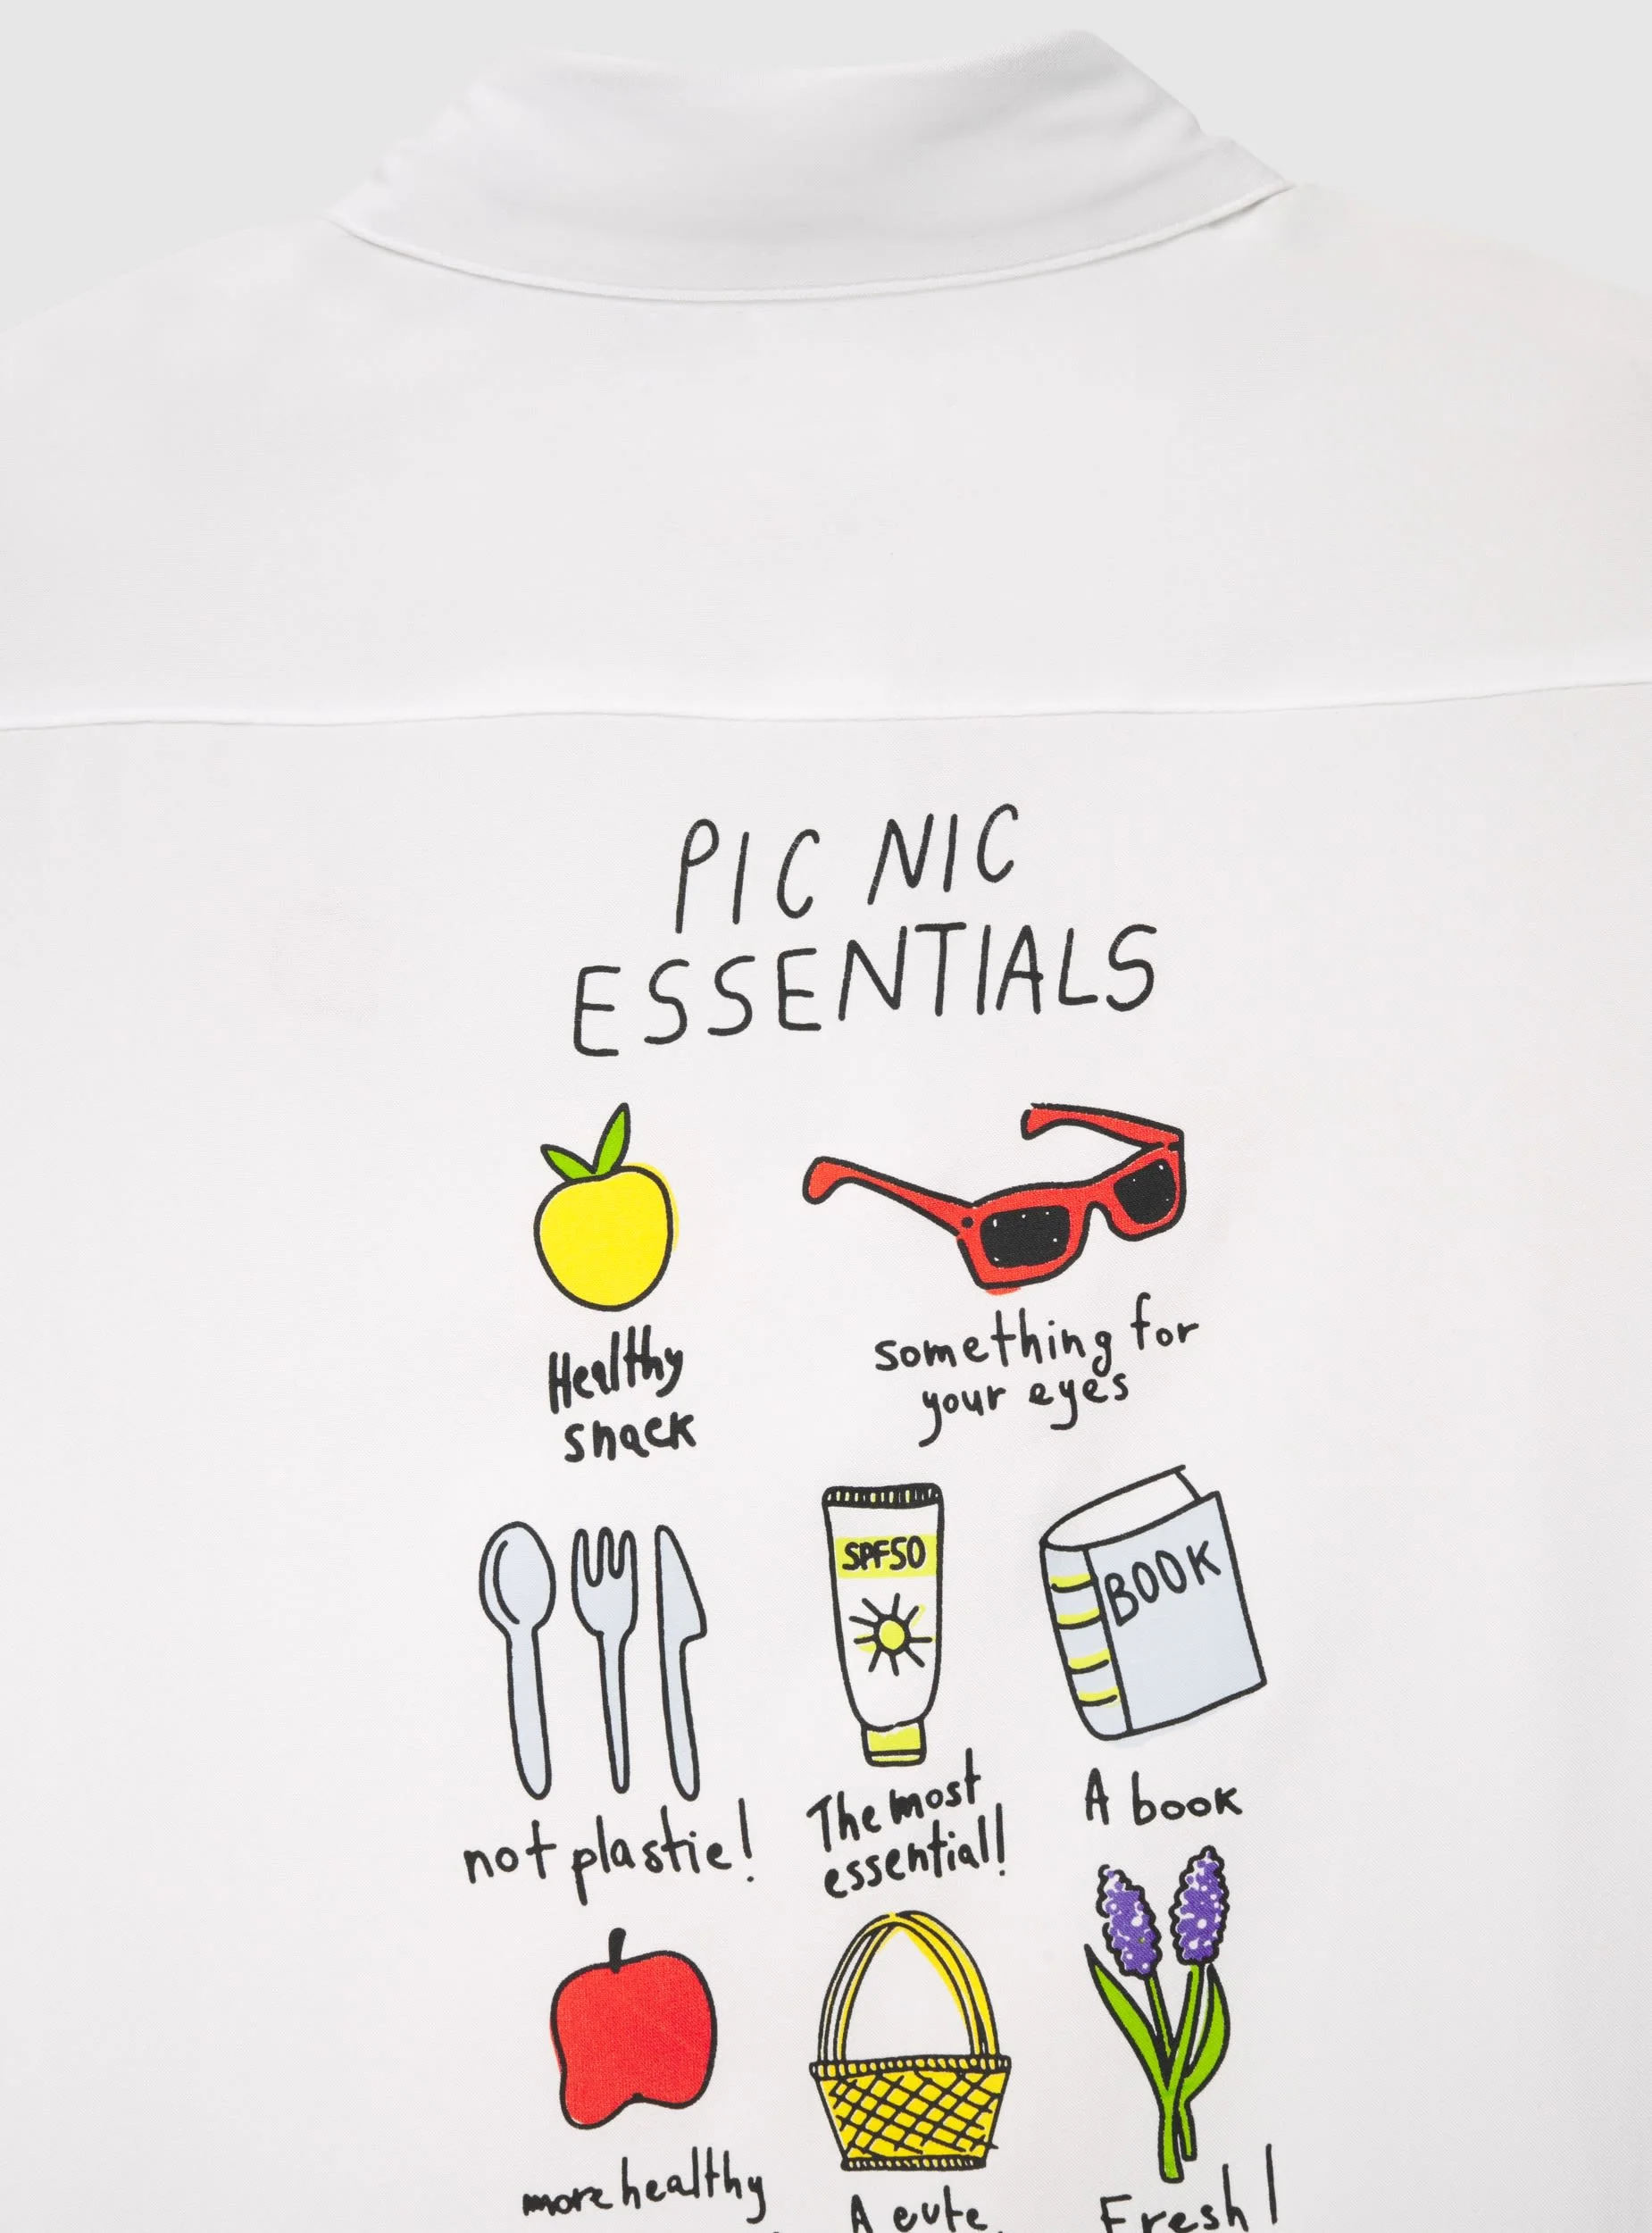 PIC NIC
ESSENTIALS
Healthy
snack
something for
your eyes
not plastic!
SPF50
The most
essential!
BOOK
A book
more healthy
A cute
Fresh!